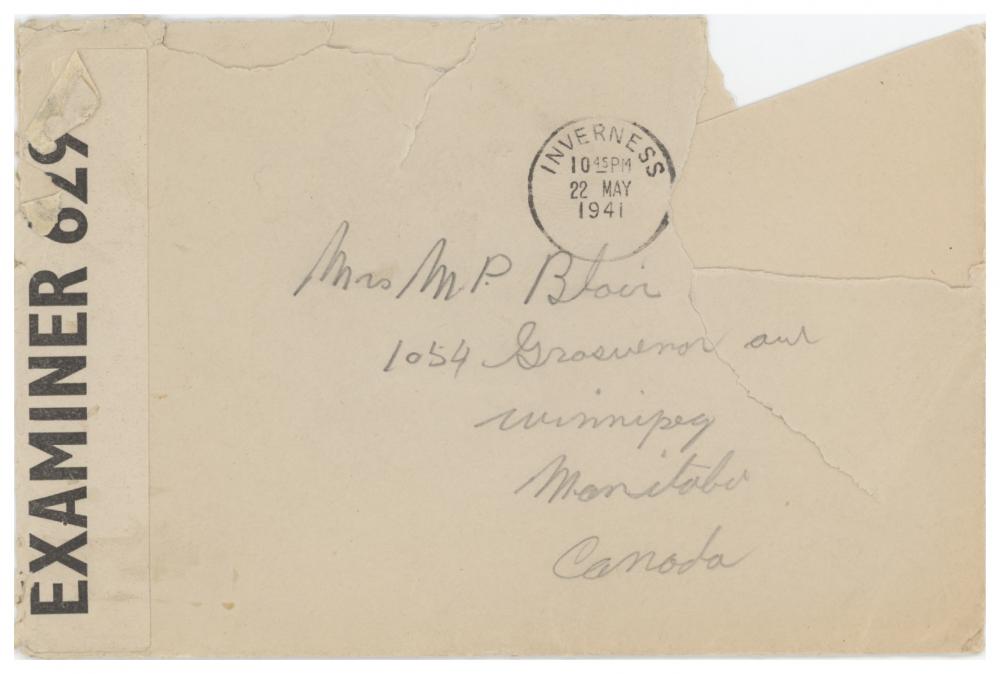 EXAMINER 629
INVERNESS
10 45 PM
22 MAY
1941
Mrs M.P. Blair
1054 Grosvenor ave
Winnipeg
Manitoba
Canada